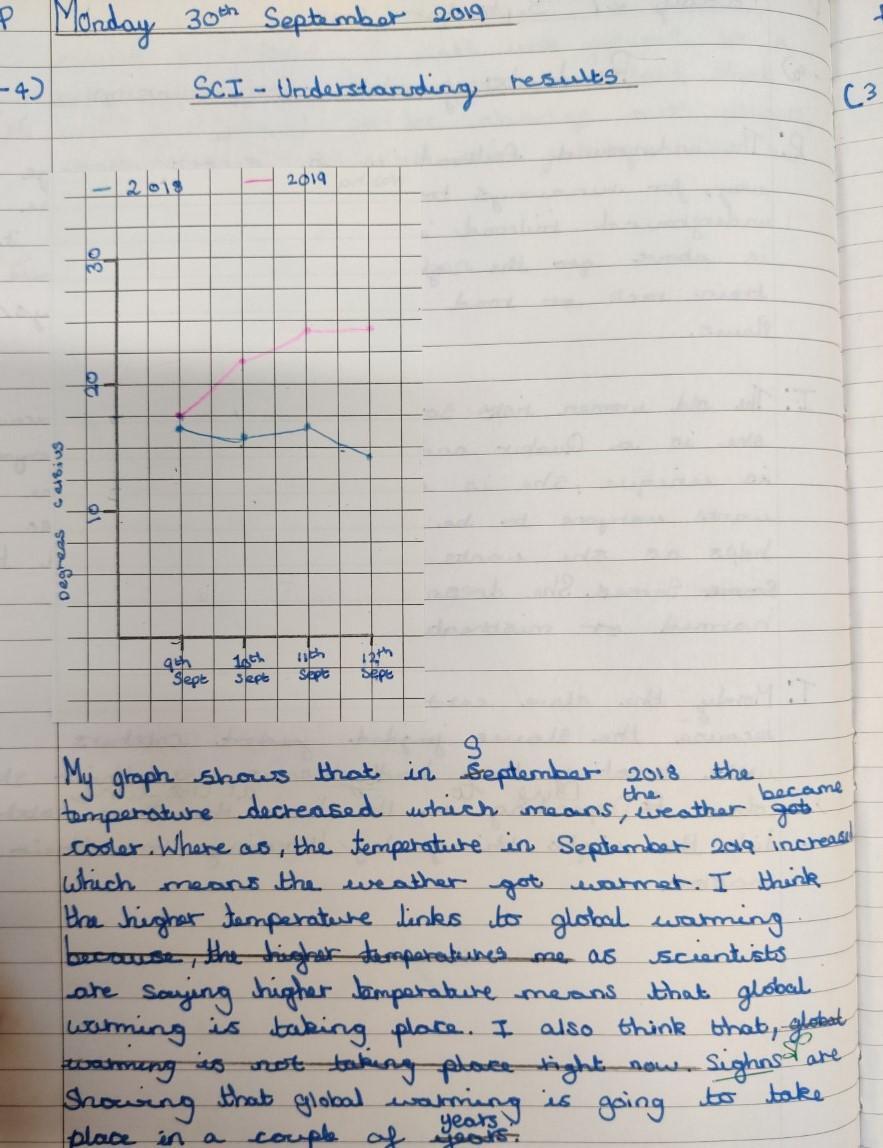 P
Monday 30th September 2019
-4)
SCI - Understanding results
(3
2018 2019
30
20
10
Degreeas celsius
9th Sept
10th Sept
11th Sept
12th Sept
My graph shows that in September 2018 the
temperature decreased which means, the weather got became
cooler. Where as, the temperature in September 2019 increased
which means the weather got warmer. I think
the higher temperature links to global warming
because, the higher temperatures me as scientists
are saying higher temperature means that global
warming is taking place. I also think that, global
warming is not taking place right now. Sighns are
showing that global warming is going to take
place in a couple of years years.